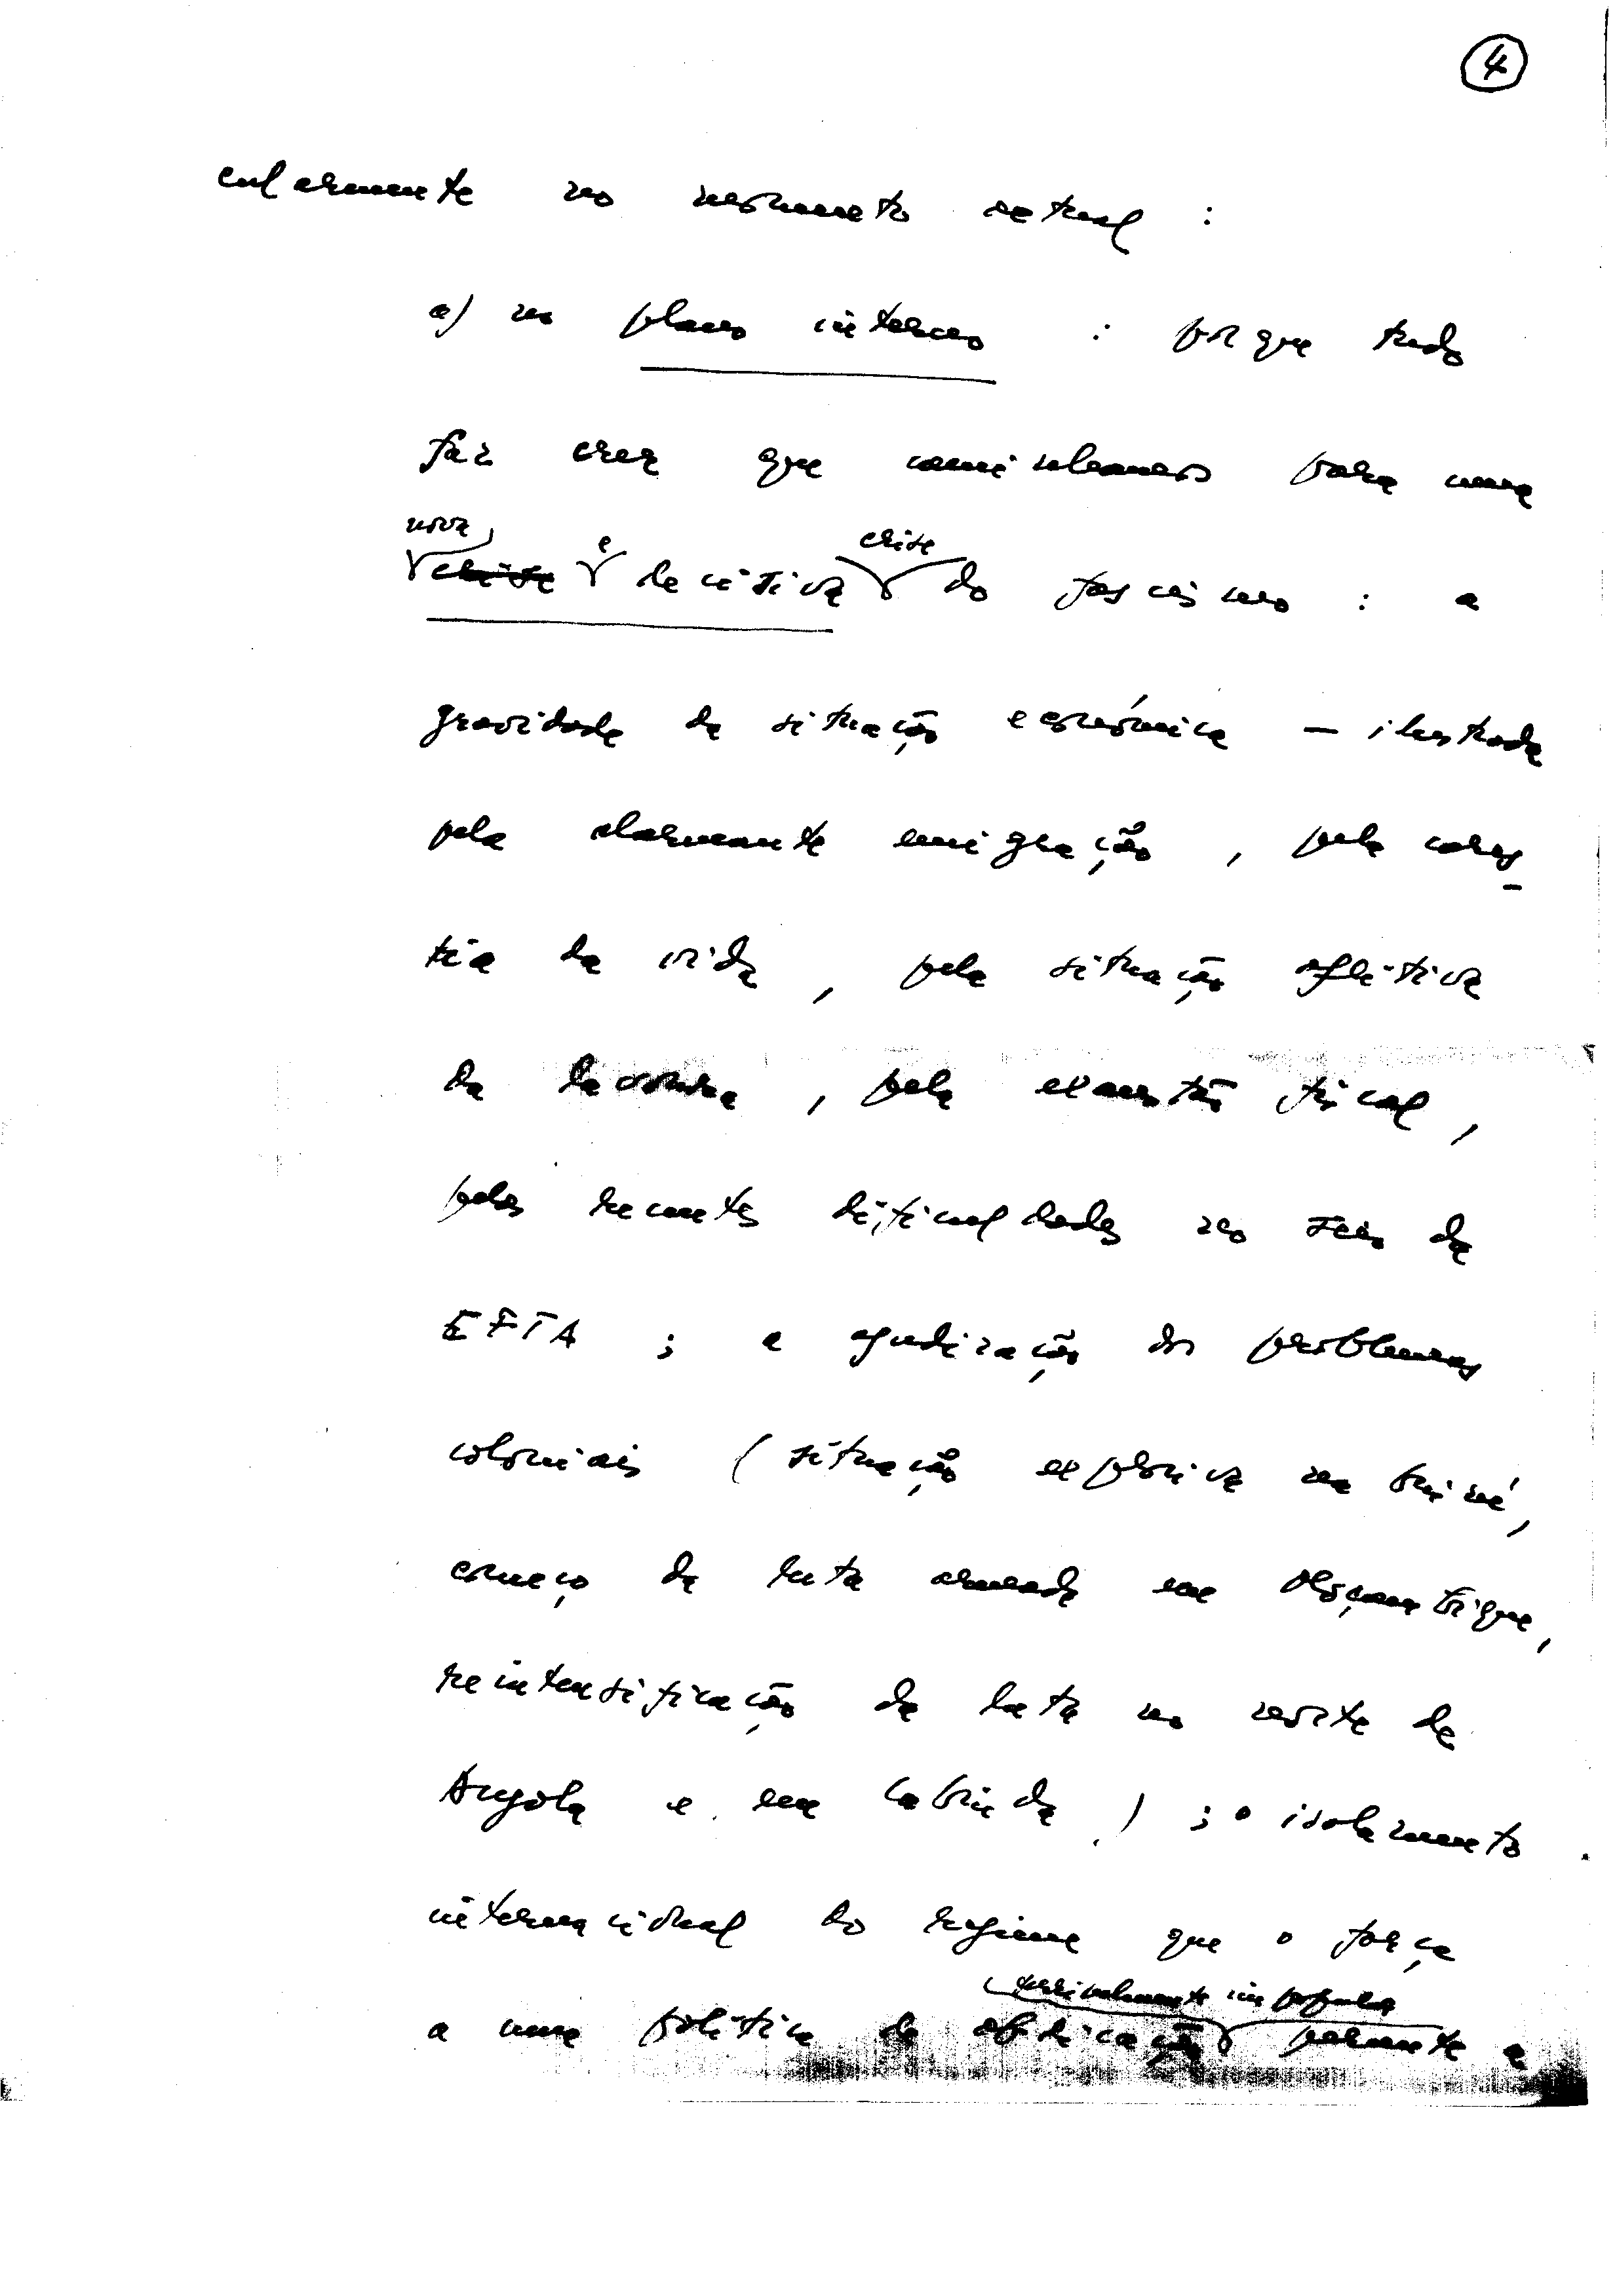 4
cularmente no momento actual :
a) no plano interno : porque tudo
faz crer que caminhamos para uma
nova e crise
crise decisiva do fascismo : a
gravidade da situação económica — ilustrada
pela alarmante emigração , pela cares-
tia da vida , pela situação aflitiva
da lavoura , pela exaustão fiscal ,
pelas recentes dificuldades no seio da
EFTA ; a agudização dos problemas
coloniais ( situação explosiva na Guiné ,
começo da luta armada em Moçambique ,
reintensificação da luta no norte de
Angola e em Cabinda ) ; o isolamento
internacional do regime que o força
terrivelmente impopular
a uma política de abdicação perante a